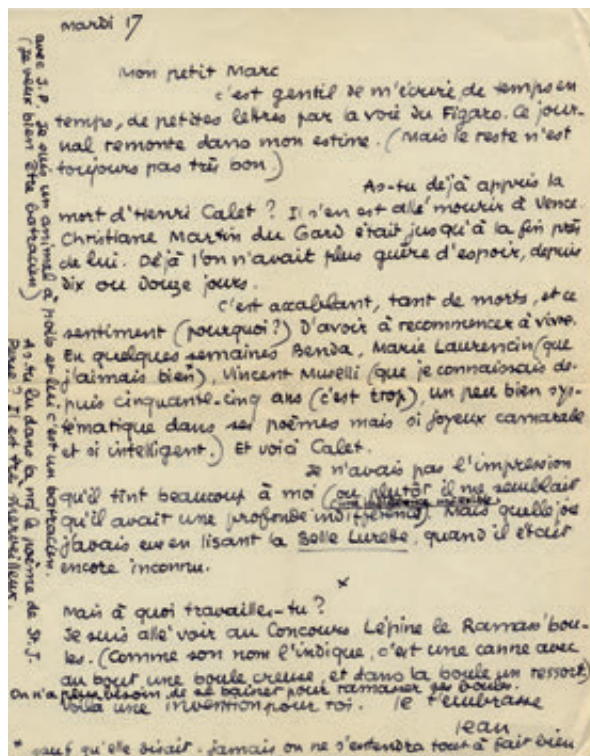 mardi 17
Mon petit Marc
c'est gentil de m'écrire, de temps en
temps, de petites lettres par la voie du Figaro. Ce jour-
nal remonte dans mon estime. (Mais le reste n'est
toujours pas très bon)
As-tu déjà appris la
mort d'Henri Calet ? Il s'en est allé mourir à Vence.
Christiane Martin du Gard était jusqu'à la fin près
de lui. Déjà l'on n'avait plus guère d'espoir, depuis
dix ou douze jours.
C'est accablant, tant de morts, et ce
sentiment (pourquoi?) d'avoir à recommencer à vivre.
En quelques semaines Benda, Marie Laurencin (que
j'aimais bien), Vincent Muselli (que je connaissais de-
puis cinquante-cinq ans (c'est trop), un peu bien sys-
tématique dans ses poèmes mais si joyeux camarade
et si intelligent.) Et voici Calet.
Je n'avais pas l'impression
qu'il tînt beaucoup à moi (ou plutôt il me semblait
qu'il avait une profonde indifférence). Mais quelle joie
j'avais eue en lisant la Belle Lurette, quand il était
encore inconnu.
*
Mais à quoi travailles-tu ?
Je suis allé voir au Concours Lépine le Ramass'bou-
les. (Comme son nom l'indique, c'est une canne avec
au bout une boule creuse, et dans la boule un ressort)
On n'a plus besoin de se baisser pour ramasser ses boules.
Voilà une invention pour toi. Je t'embrasse
Jean
* sauf qu'elle disait. jamais on ne s'entendra tout à fait bien
avec J.P. Je suis un animal à poils et lui c'est un batracien.
(Je veux bien être batracien)
As-tu lu dans la nrf le poème de St. J.
Perse ? Il est très merveilleux.